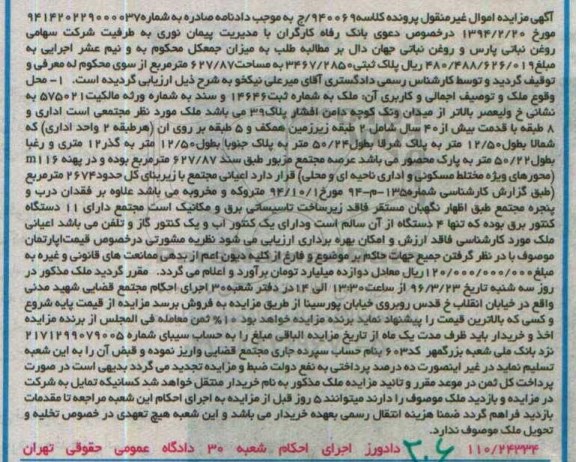 آگهی مزایده اموال غیرمنقول پرونده کلاسه۹۴۰۰۶۹/ج به موجب دادنامه صادره به شماره۹۴۱۴۲۰۲۲۹۰۰۰۰۳۷
مورخ ۱۳۹۴/۲/۲۰ درخصوص دعوی بانک رفاه کارگران با مدیریت پیمان نوری به طرفیت شرکت سهامی
روغن نباتی پارس و روغن نباتی جهان دال بر مطالبه طلب به میزان جمعکل محکوم به و نیم عشر اجرایی به
مبلغ۴۸۰/۴۸۸/۶۲۶/۰۱۹ ریال پلاک ثبتی۳۴۶۷/۲۸۵۰ به مساحت۶۲۷/۸۷ مترمربع از سوی محکوم له معرفی و
توقیف گردید و توسط کارشناس رسمی دادگستری آقای میرعلی نیکخو به شرح ذیل ارزیابی گردیده است. ۱- محل
وقوع ملک و توصیف اجمالی و کاربری آن: ملک به شماره ثبت۱۴۶۴۶ و سند به شماره ورثه مالکیت۵۷۵۰۲۱ به
نشانی خ ولیعصر بالاتر از میدان ونک کوچه دامن افشار پلاک۳۹ می باشد ملک مورد نظر مجتمعی است اداری و
۸ طبقه با قدمت بیش از ۴۰ سال شامل ۲ طبقه زیرزمین همکف و ۵ طبقه بر روی ان (هرطبقه ۲ واحد اداری) که
شمالا بطول۱۲/۵۰ متر به پلاک شرقا بطول۵۰/۲۴ متر به پلاک جنوبا بطول۱۲/۵۰ متر به گذر۱۲ متری و رغبا
بطول۵۰/۲۲ متر به پارک محصور می باشد عرصه مجتمع مزبور طبق سند ۶۲۷/۸۷ مترمربع بوده و در پهنه m۱۱۶
(محورهای ویژه مختلط مسکونی و اداری ناحیه ای و محلی) قرار دارد اعیانی مجتمع با زیربنای کل حدود۲۶۷۴ مترمربع
(طبق گزارش کارشناسی شماره۱۳۵-م-۹۴ مورخ۹۴/۱۰/۱ متروکه و مخروبه می باشد علاوه بر فقدان درب و
پنجره مجتمع طبق اظهار نگهبان مستقر فاقد زیرساخت تاسیساتی برق و مکانیک است مجتمع دارای ۱۱ دستگاه
کنتور برق بوده که تنها ۴ دستگاه از آن سالم است ودارای یک کنتور آب و یک کنتور گاز و تلفن می باشد اعیانی
ملک مورد کارشناسی فاقد ارزش و امکان بهره برداری ارزیابی می شود نظریه مشورتی درخصوص قیمت‌اپارتمان
موصوف با در نظر گرفتن جمیع جهات حاکم بر موضوع و فارغ از کلیه دیون اعم از بدهی ممانعت های قانونی و غیره به
مبلغ۱۲۰/۰۰۰/۰۰۰/۰۰۰ریال معادل دوازده میلیارد تومان برآورد و اعلام می گردد. مقرر گردید ملک مذکور در
روز سه شنبه تاریخ ۹۶/۳/۲۳ از ساعت۱۳:۳۰ الی ۱۴ در دفتر شعبه۳۰ اجرای احکام مجتمع قضایی شهید مدنی
واقع در خیابان انقلاب خ قدس روبروی خیابان پورسینا از طریق مزایده به فروش برسد مزایده از قیمت پایه شروع
و کسی که بالاترین قیمت را پیشنهاد نماید برنده مزایده خواهد بود ۱۰% ثمن معامله فی المجلس از برنده مزایده
اخذ و خریدار باید ظرف مدت یک ماه از تاریخ مزایده الباقی مبلغ را به حساب سیبای شماره ۲۱۷۱۲۹۹۰۷۹۰۰۵
نزد بانک ملی شعبه بزرگمهر کد۶۰۳ بنام حساب سپرده جاری مجتمع قضایی واریز نموده و قبض آن را به این شعبه
تسلیم نماید در غیر اینصورت ده درصد پرداختی به نفع دولت ضبط و مزایده تجدید می گردد بدیهی است در صورت
پرداخت کل ثمن در موعد مقرر و تائید مزایده ملک مذکور به نام خریدار منتقل خواهد شد کسانیکه تمایل به شرکت
در مزایده و بازدید ملک موصوف را دارند میتوانند ۵ روز قبل از مزایده به اجرای احکام این شعبه مراجعه تا مقدمات
بازدید فراهم گردد ضمنا هزینه انتقال رسمی بعهده خریدار می باشد و این شعبه هیچ تعهدی در خصوص تخلیه و
تحویل ملک موصوف ندارد.
۱۱۰/۲۴۳۳۴ دادورز اجرای احکام شعبه ۳۰ دادگاه عمومی حقوقی تهران
۲۰۶